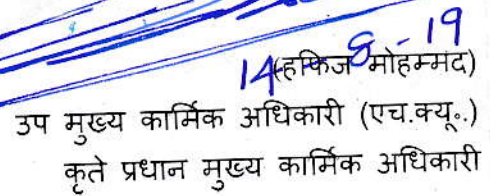 14-8-19
(हफिज मोहम्मद)
उप मुख्य कार्मिक अधिकारी (एच.क्यू..)
कृते प्रधान मुख्य कार्मिक अधिकारी